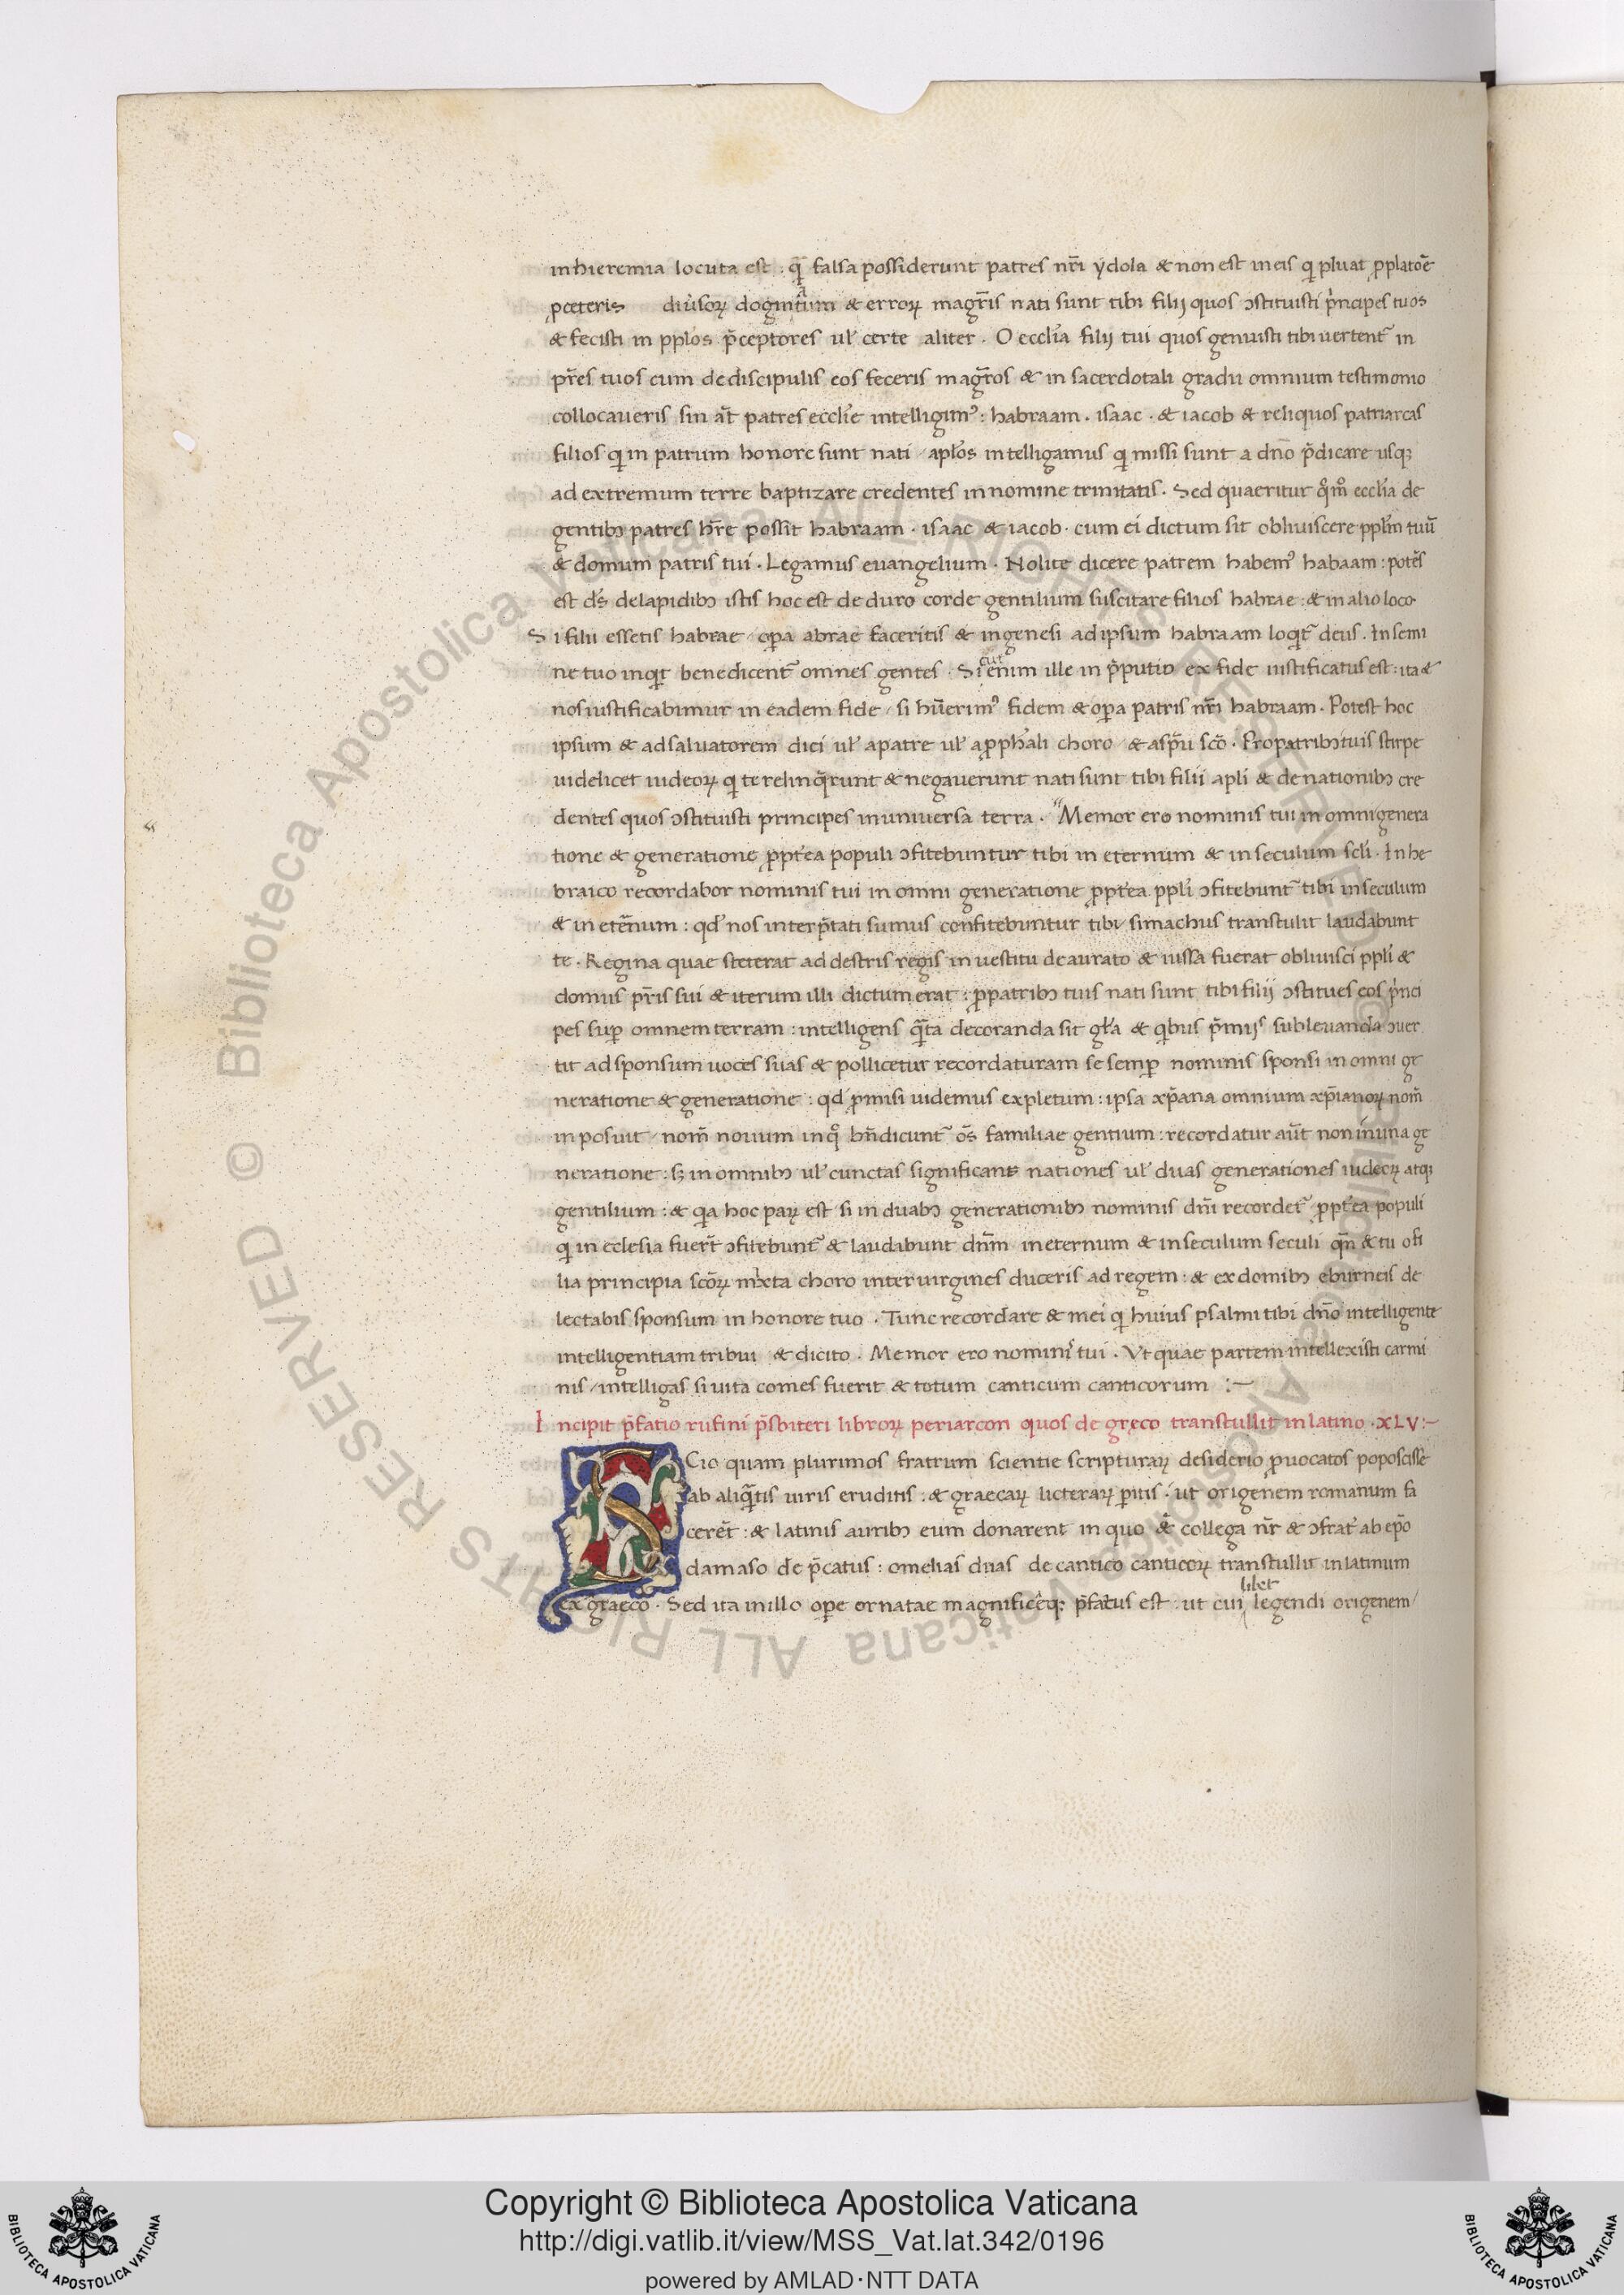 inhieremia locuta est : q̄ falsa possiderunt patres nr̄i ydola & non est in eis qi pluat ꝓplatoē
p̱ceteris diu̓soꝝ dogmatum & erroꝝ magr̄is nati sunt tibi filij quos ↄstituisti p̓ncipes tuos
& fecisti in pplos p̄ceptores ul̓ certe aliter . O eccl̓ia filij tui quos genuisti tibi uertent̄ in
pr̄es tuos cum de discipulis eos feceris magr̄os & in sacerdotali gradu omnium testimonio
collocaueris sin at̄ patres eccl̓ie intelligim᾿ : habraam . isaac . & iacob & reliquos patriarcas
filios qi in patrum honore sunt nati / apl̓os intelligamus qi missi sunt a dn̄o p̄dicare usqꝫ
ad extremum terre baptizare credentes in nomine trinitatis . Sed quaeritur qͦmͦ eccl̓ia de
gentibꝫ patres hr̄e possit habraam . isaac & iacob . cum ei dictum sit obliuiscere ppl̓m tuū
& domum patris tui . Legamus euangelium . Nolite dicere patrem habem᾿ habaam : potēs
est ds̄ delapidibꝫ istis hoc est de duro corde gentilium suscitare filios habrae : & in alio loco
Si filii essetis habrae / opa abrae faceritis & ingenesi ad ipsum habraam loqit̄ deus . In semi
ne tuo inqit benedicent̄ omnes gentes . Sicut enim ille in p̄putio ex fide iustificatus est : ita &
nos iustificabimur in eadem fide / si hu̅erim᾿ fidem & opa patris nr̄i habraam . Potest hoc
ipsum & adsaluatorem dici ul̓ apatre ul̓ aꝓph̓ali choro / & aspū scō . Propatribꝫ tuis stirpe
uidelicet iudeoꝝ qi te relinq̄runt & negauerunt nati sunt tibi filii apli & de nationibꝫ cre
dentes quos ↄstituisti principes inuniuersa terra . "Memor ero nominis tui in omni genera
tione & generatione ꝓpt̓ea populi ↄfitebuntur tibi in eternum & in seculum scl̓i . In he
braico recordabor nominis tui in omni generatione ꝓpt̓ea ppl̓i ↄfitebunt̄ tibi in seculum
& in etēnum : qd̓ nos interp̄tati sumus confitebuntur tibi / simachus transtulit laudabunt
te . Regina quae steterat ad destris regis in uestitu deaurato & iussa fuerat obliuisci ppl̓i &
domus pr̄is sui & iterum illi dictum erat : ꝓpatribꝫ tuis nati sunt tibi filij ↄstitues eos p̓nci
pes sup omnem terram : intelligens q̄ta decoranda sit gl̓a & qibus p̄mijs subleuanda ↄuer
tit ad sponsum uoces suas & pollicetur recordaturam se semp nominis sponsi in omni ge
neratione & generatione : qd̓ ꝓmisi uidemus expletum : ipsa xp̄ana omnium xp̄ianoꝝ nom̄
in posuit / nom̄ nouum inqͦ bn̄dicunt̄ os̄ familiae gentium : recordatur aūt non in una ge
neratione : sꝫ in omnibꝫ ul̓ cunctas significant nationes ul̓ duas generationes iudeoꝝ atqꝫ
gentilium : & qia hoc paꝝ est si in duabꝫ generationibꝫ nominis dn̄i recordet̄ ꝓpt̓ea populi
qi in eclesia fuert̄ ↄfitebunt̄ & laudabunt dn̄m in eternum & in seculum seculi qm̄ & tu o fi
lia principia scōꝝ mixta choro inter uirgines duceris ad regem : & ex domibꝫ eburneis de
lectabis sponsum in honore tuo . Tunc recordare & mei qi huius psalmi tibi dn̄o intelligente
intelligentiam tribui & dicito . Memor ero nomini᾿ tui . Vt quae partem intellexisti carmi
nis / intelligas si uita comes fuerit & totum canticum canticorum :~
Incipit p̄fatio rufini p̄sbiteri libroꝝ periarcon quos de gręco transtullit in latino . XLV :~
SCio quam plurimos fratrum scientie scripturaꝝ desiderio ꝓuocatos poposcisse
ab aliq̄tis uiris eruditis : & graecaꝝ licteraꝝ pitis : ut origenem romanum fa
ceret̄ : & latinis auribꝫ eum donarent in quo & collega nr̄ & ↄfrat̓ ab epō
damaso de p̄catus : omelias duas de cantico canticoꝝ transtullit in latinum
ex graeco . Sed ita in illo ope ornatae magnificeqꝫ p̄fatus est : ut cui libet legendi origenem /
Copyright © Biblioteca Apostolica Vaticana
http://digi.vatlib.it/view/MSS_Vat.lat.342/0196
powered by AMLAD·NTT DATA
BIBLIOTECA APOSTOLICA VATICANA
BIBLIOTECA APOSTOLICA VATICANA
© Biblioteca Apostolica Vaticana ALL RIGHTS RESERVED
© Biblioteca Apostolica Vaticana ALL RIGHTS RESERVED